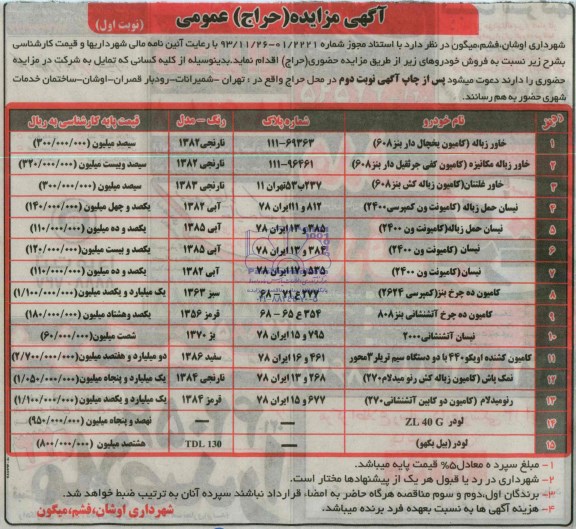 آگهی مزایده(حراج) عمومی (نوبت اول)
شهرداری اوشان،فشم،میگون در نظر دارد با استناد مجوز شماره ۰۱/۲۲۲۱-۹۳/۱۱/۲۶ با رعایت آئین نامه مالی شهرداریها و قیمت کارشناسی
بشرح زیر نسبت به فروش خودروهای زیر از طریق مزایده حضوری(حراج) اقدام نماید.بدینوسیله از کلیه کسانی که تمایل به شرکت در مزایده
حضوری را دارند دعوت میشود پس از چاپ آگهی نوبت دوم در محل حراج واقع در : تهران -شمیرانات-رودبار قصران-اوشان-ساختمان خدمات
شهری حضور به هم رسانند.
نام خودرو شماره پلاک رنگ - مدل قیمت پایه کارشناسی به ریال
۱ خاور زباله (کامیون یخچال دار بنز۶۰۸) ۱۱۱-۶۹۳۶۳ نارنجی۱۳۸۲ سیصد میلیون (۳۰۰/۰۰۰/۰۰۰)
۲ خاور زباله مکانیزه (کامیون کفی جرثقیل دار بنز۶۰۸) ۱۱۱-۹۶۴۶۱ نارنجی۱۳۸۲ سیصد وبیست میلیون (۳۲۰/۰۰۰/۰۰۰)
۳ خاور غلتان(کامیون زباله کش بنز۶۰۸) ۲۳۷ب۵۳تهران ۱۱ نارنجی۱۳۸۳ سیصد میلیون (۳۰۰/۰۰۰/۰۰۰)
۴ نیسان حمل زباله (کامیونت ون کمپرسی۲۴۰۰) ۸۱۲و۱۱ایران ۷۸ آبی ۱۳۸۲ یکصد و چهل میلیون (۱۴۰/۰۰۰/۰۰۰)
۵ نیسان حمل زباله(کامیونت ون ۲۴۰۰) ۳۸۵و۱۴ایران ۷۸ آبی ۱۳۸۵ یکصد و ده میلیون (۱۱۰/۰۰۰/۰۰۰)
۶ نیسان (کامیونت ون ۲۴۰۰) ۳۸۴و۱۲ایران ۷۸ آبی ۱۳۸۵ یکصد و بیست میلیون (۱۲۰/۰۰۰/۰۰۰)
۷ نیسان (کامیونت ون ۲۴۰۰) ۵۳۵و۱۷ایران ۷۸ آبی ۱۳۸۲ یکصد و ده میلیون (۱۱۰/۰۰۰/۰۰۰)
۸ کامیون ده چرخ بنز(کمپرسی ۲۶۲۴) ۲۷۷ع۷۱-۶۸ سبز ۱۳۶۳ یک میلیارد و یکصد میلیون (۱/۱۰۰/۰۰۰/۰۰۰)
۹ کامیون ده چرخ آتشنشانی بنز۸۰۸ ۳۵۴ع ۶۵ - ۶۸ قرمز ۱۳۵۶ یکصد وهشتاد میلیون (۱۸۰/۰۰۰/۰۰۰)
۱۰ نیسان آتشنشانی۲۰۰۰ ۷۹۵ و ۱۵ ایران ۷۸ بژ ۱۳۷۰ شصت میلیون(۶۰/۰۰۰/۰۰۰)
۱۱ کامیون کشنده اویکو۴۴۰ با دو دستگاه سیم تریلر۳محور ۴۶۱ و ۱۶ ایران ۷۸ سفید ۱۳۸۶ دو میلیارد و هفتصد میلیون(۲/۷۰۰/۰۰۰/۰۰۰)
۱۲ نمک پاش (کامیون زباله کش رنو میدلام۲۷۰) ۲۶۸ و ۱۳ ایران ۷۸ نارنجی ۱۳۸۴ یک میلیارد و پنجاه میلیون(۱/۰۵۰/۰۰۰/۰۰۰)
۱۳ رنومیدلام (کامیون دو کابین آتشنشانی۲۷۰) ۶۷۷ و ۱۵ ایران ۷۸ قرمز ۱۳۸۴ یک میلیارد و یکصد میلیون(۱/۱۰۰/۰۰۰/۰۰۰)
۱۴ لودر ZL 40 G — — نهصد و پنجاه میلیون(۹۵۰/۰۰۰/۰۰۰)
۱۵ لودر(بیل بکهو) — TDL 130 هشتصد میلیون (۸۰۰/۰۰۰/۰۰۰)
۱- مبلغ سپرده معادل۵% قیمت پایه میباشد.
۲- شهرداری در رد یا قبول هر یک از پیشنهادها مختار است.
۳- برندگان اول،دوم و سوم مناقصه هرگاه حاضر به امضاء قرارداد نباشند سپرده آنان به ترتیب ضبط خواهد شد.
۴- هزینه آگهی ها به نسبت بعهده فرد برنده میباشد.
شهرداری اوشان،فشم،میگون